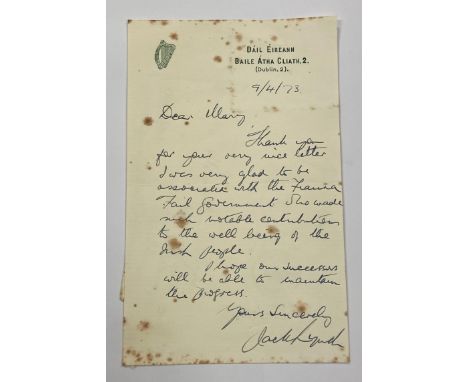 DÁIL ÉIREANN
BAILE ÁTHA CLIATH, 2.
(Dublin, 2).
9/4/73
Dear Mary
Thank you
for your very nice letter
I was very glad to be
associate with the Fianna
Fail Government who made
such notable contributions
to the well being of the
Irish people.
I hope our successors
will be able to maintain
the progress.
Yours sincerely
Jack Lynch